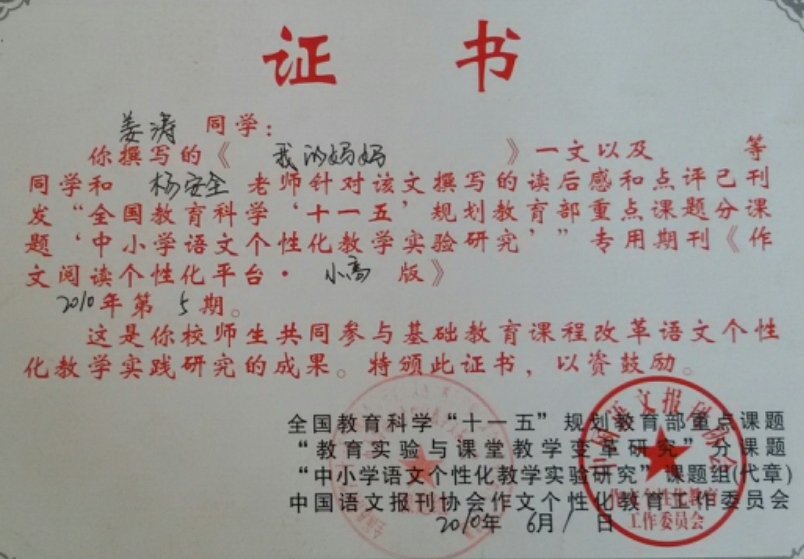 证 书
姜涛 同学:
你撰写的《 我的妈妈 》一文以及 等
同学和 杨安全 老师针对该文撰写的读后感和点评已刊
发“全国教育科学‘十一五’规划教育部重点课题分课
题‘中小学语文个性化教学实验研究’”专用期刊《作
文阅读个性化平台· 小高 版》
2010年第 5 期。
这是你校师生共同参与基础教育课程改革语文个性
化教学实践研究的成果。特颁此证书,以资鼓励。
全国教育科学“十一五”规划教育部重点课题
“教育实验与课堂教学变革研究”分课题
“中小学语文个性化教学实验研究”课题组(代章)
中国语文报刊协会作文个性化教育工作委员会
2010年 6月1日
中国语文报刊协会
作文个性化教育
工作委员会